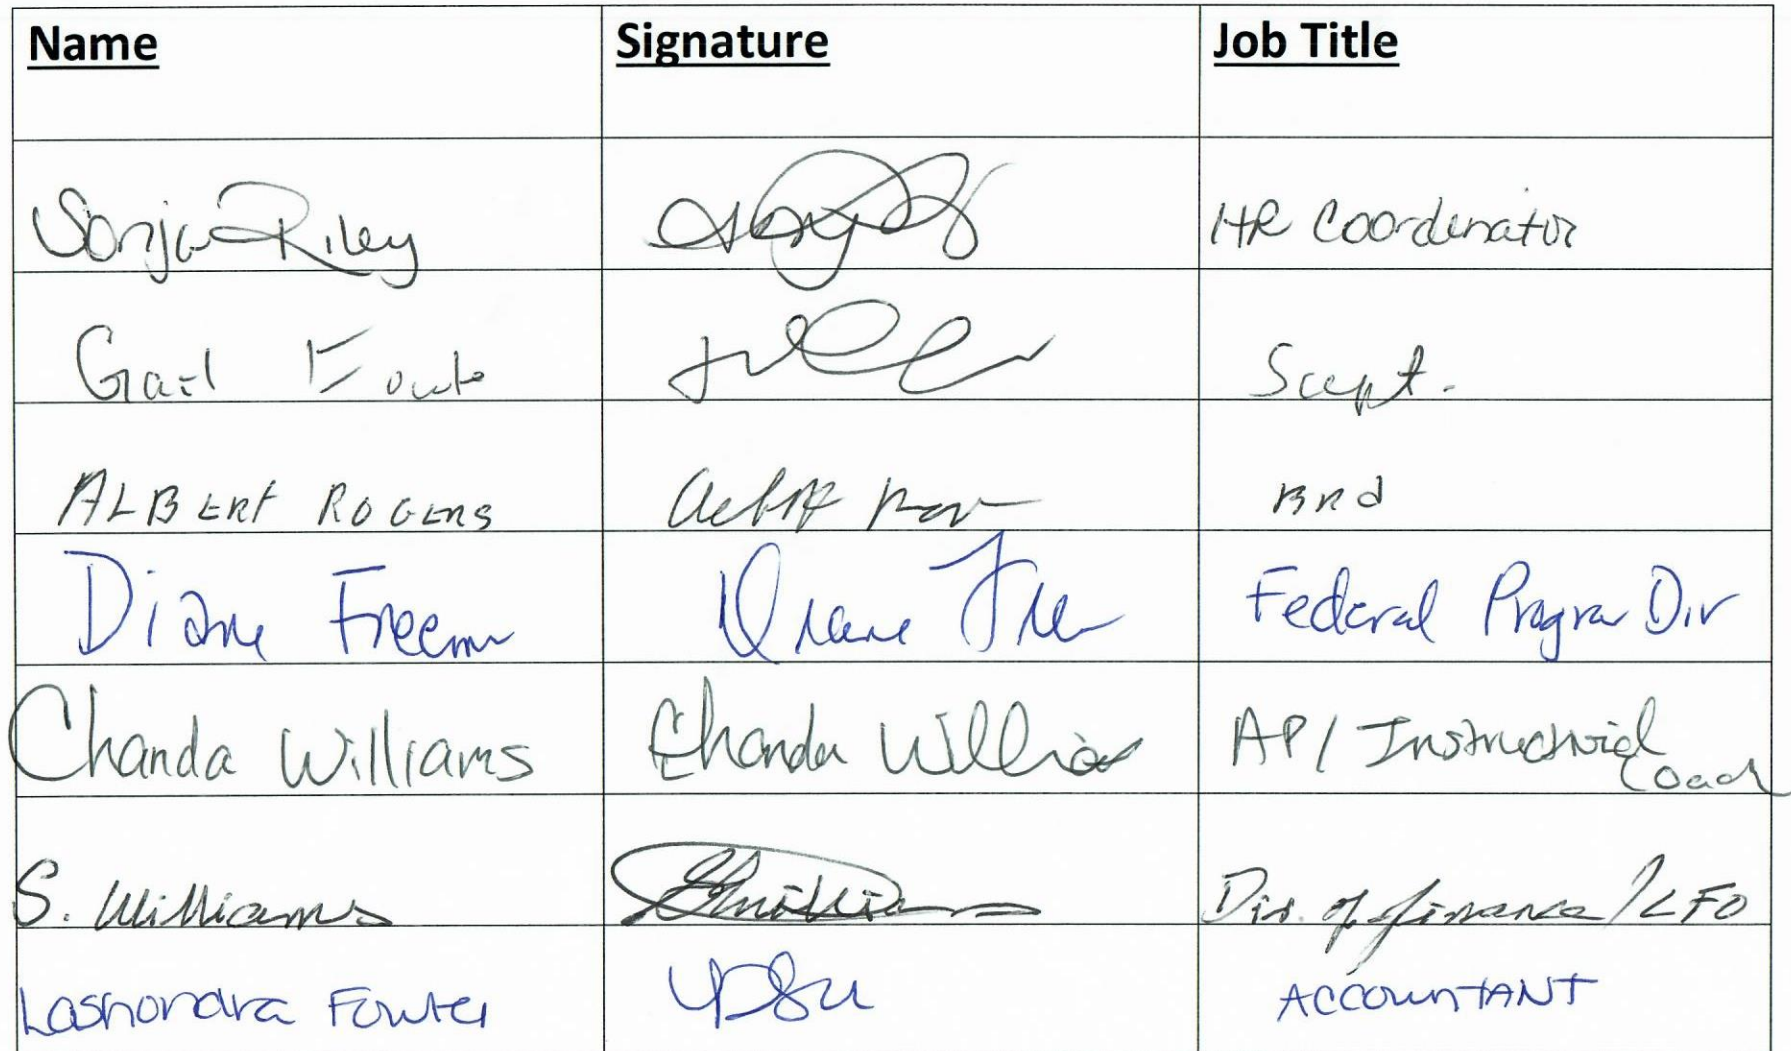 Name Signature Job Title
Sonja Riley HR Coordinator
Gail Supt.
ALBERT ROGERS BRD
Diane Freem Diane Federal Program Div
Chanda Williams Chanda Williams AP/ Instructional
Coach
S. Williams SWilliams Dir. of finance/CFO
Lashondra ACCOUNTANT